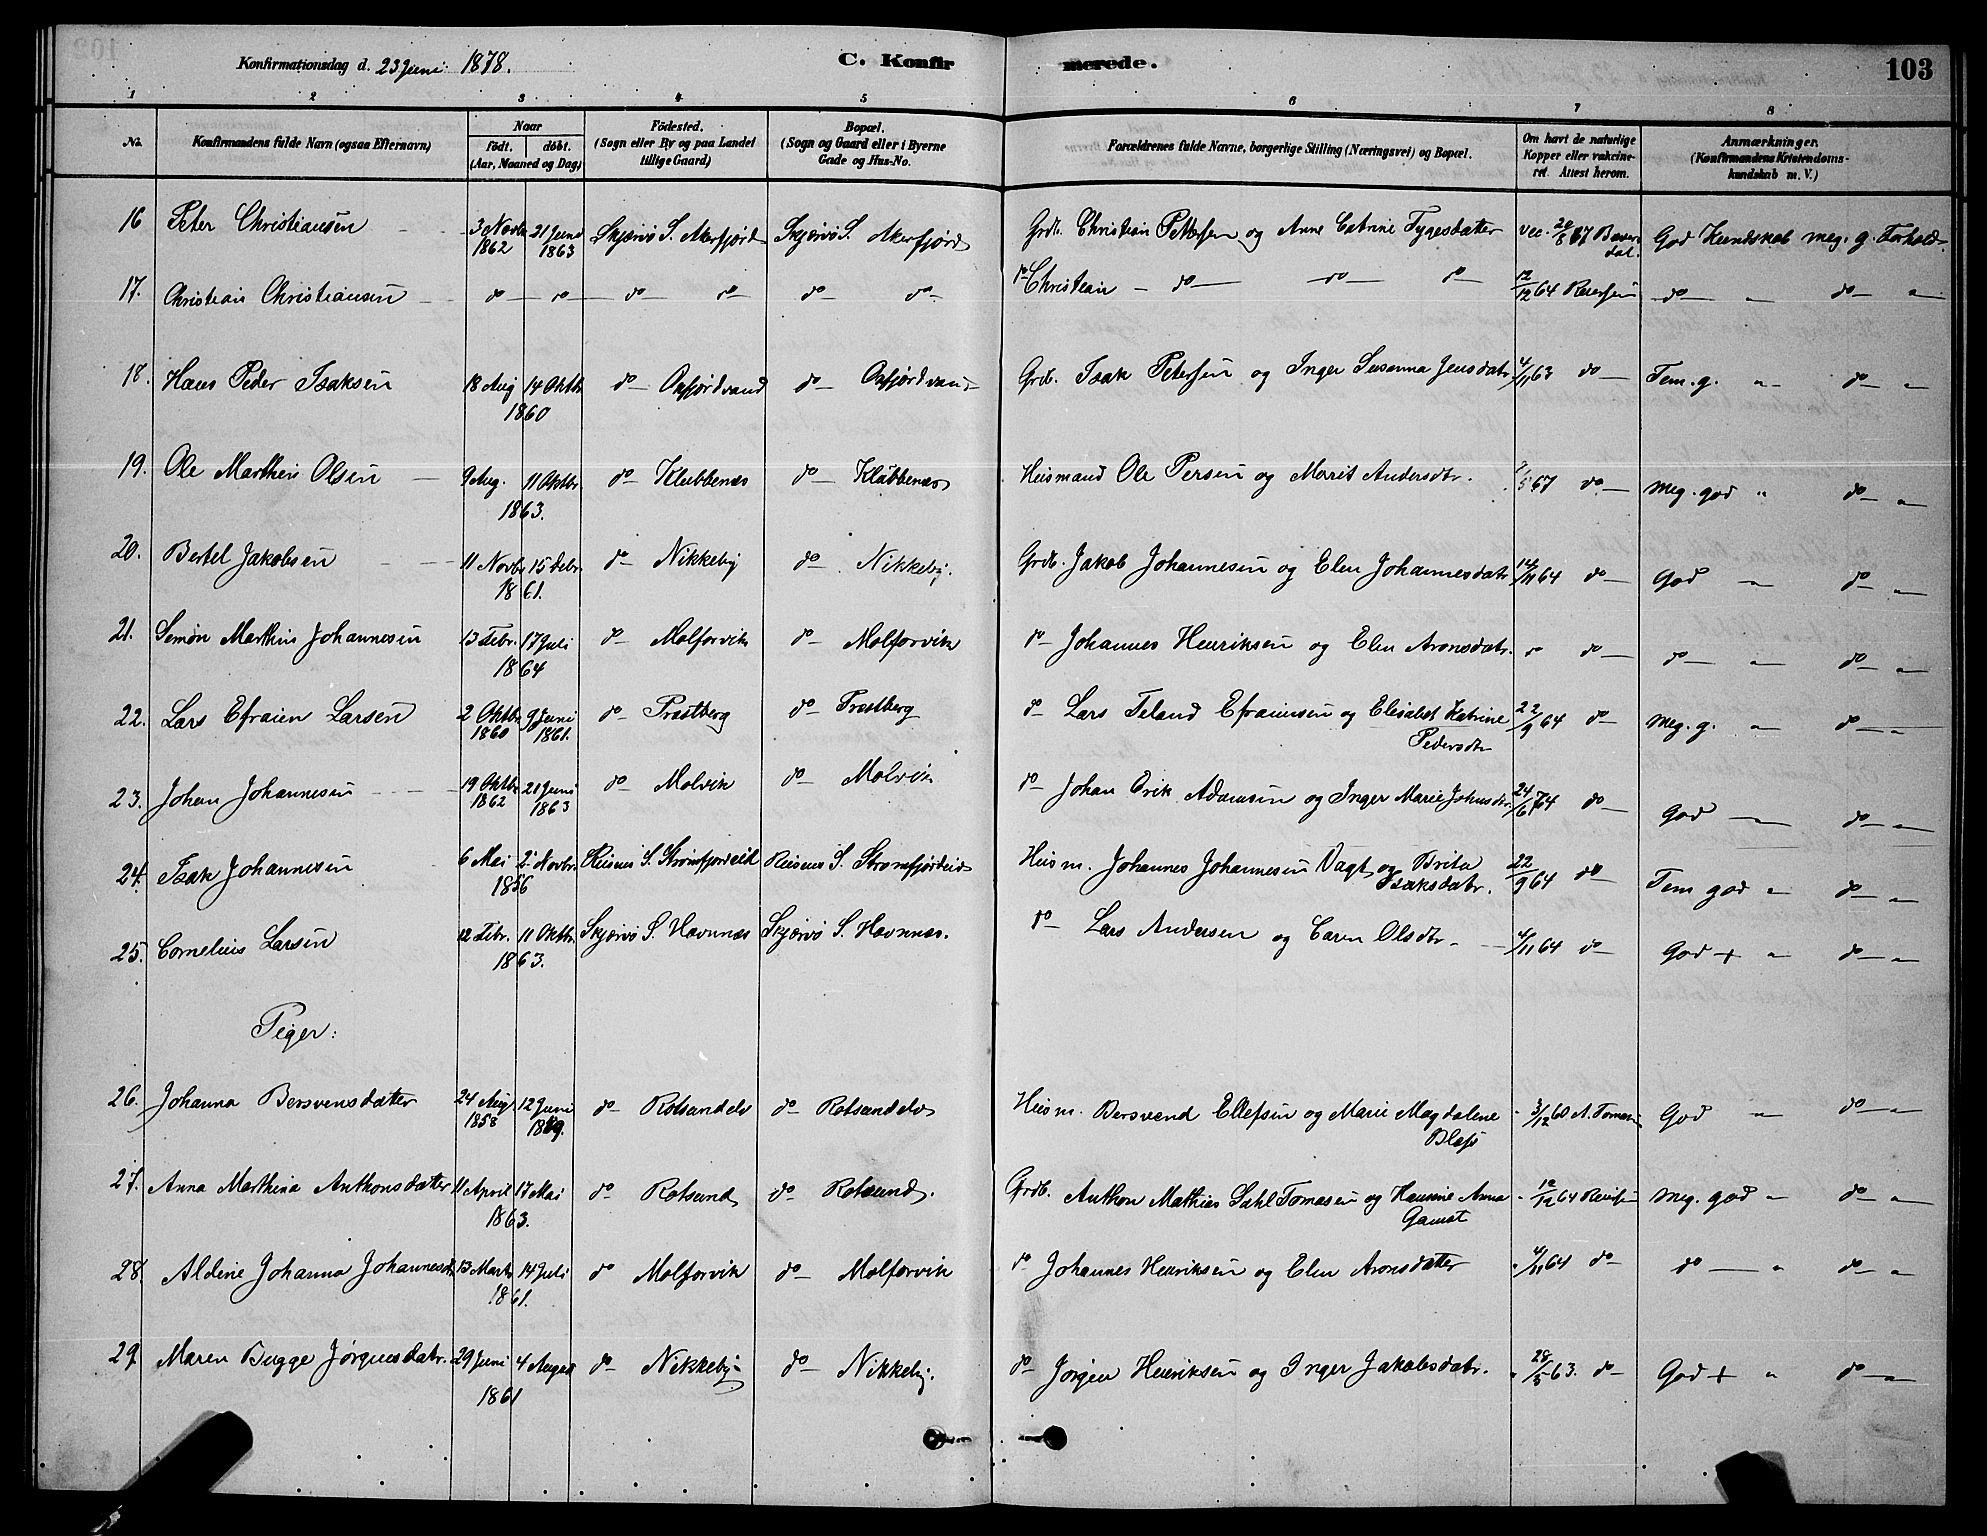 Konfirmationsdag d. 23 Juni 1878. C. Konfirmerede. 103
1 2 3 4 5 6 7 8
No. Konfirmandens fulde Navn (ogsaa Efternavn) Naar født. døbt. (Aar, Maaned og Dag) Födested. (Sogn eller By og paa Landet tillige Gaard) Bopæl. (Sogn og Gaard eller i Byerne Gade og Hus-No. Forældrenes fulde Navne, borgerlige Stilling (Næringsvei) og Bopæl. Om havt de naturlige Kopper eller vakcineret. Attest herom. Anmærkninger. (Konfirmandens Kristendomskundskab m. V.)
16 Peter Christiansen 3 Novbr 1862 21 Juni 1863 Skjærvö S. Akerfjord Skjærvö S. Akerfjord Grdb. Christian Pettersen og Anne Catrine Tygesdatter vec. 28/8 67 God Kundskab meg. g. Forhold
17. Christian Christiansen do do do do do do do Christian do do do 12/12 64 Reiersen do " do "
18. Hans Peder Isaksen 18 Aug 14 Oktbr 1860 do Oxfjordvand do Oxfjordvand Grdb. Isak Petersen og Inger Susanna Jensdatr 4/11 63 do Tem. g. " do "
19. Ole Marthin Olsen 9 Aug. 11 Oktbr 1863. do Klubbenæs do Klubbenæs Husmand Ole Persen og Marit Andersdtr. 5 67 do meg. god " do "
20. Bertel Jakobsen 11 Novbr 15 Debr. 1861. do Nikkeby do Nikkeby. Grdb. Jakob Johannesen og Elen Johannesdatr 14/11 64 do God " do "
21. Semøn Marthin Johannesen 13 Febr. 17 Juli 1864 do Molforvik do Molforvik do Johannes Henriksen og Elen Aronsdatr. do do do " do "
22. Lars Efraien Larsen 2 Oktbr 1860 9 Juni 1861. do Prastberg do Prastberg do Lars Efraimsen og Elisabet Katrine Pedersdtr 22/9 64 do meg. g. " do "
23. Johan Johannesen 19 Oktbr 1862 21 Juni 1863 do Molvik do Molvik do Johan Erik Adamsen og Inger Marie Johnsdtr. 24/6 64 do God do "
24. Isak Johannesen 6 Mai 2 Novbr 1856 Reisens S. Strömfjordeid Reisens S. Strömfjordeid Husm. Johannes Johannesen Vagt og Brita Isaksdatr. 22/9 64 do Tem god " do "
25. Cornelius Larsen 12 Febr. 11 Oktbr 1863. Skjærvö S. Havnnæs Skjærvö S. Havnnæs. do Lars Andersen og Caren Olsdtr. 4/11 64 do God + " do "
Piger:
26. Johanna Bersvensdatter 24 Aug 1858 12 Juni 1859. do Rotsundelv do Rotsundelv Husm. Bersvend Ellefsen og Marie Magdalene Blass 3/12 60 God " do "
27. Anna Marthina Anthonsdatter 11 April 17 Mai 1863. do Rotsund do Rotsund. Grdb. Anthon Mathias Dahl Tomasen og Hannine Anna Gamst 12/12 64 Reiersen meg. god " do "
28. Aldine Johanna Johannesdtr 13 Marts 14 Juli 1861. do Molforvik do Molforvik do Johannes Henriksen og Elen Aronsdatter 4/11 64 do do " do "
29. Maren Bugge Jørgensdatr. 29 Juni 4 August 1861 do Nikkeby do Nikkeby. do Jørgen Henriksen og Inger Jakobsdatr. 28/5 63. do God + " do "